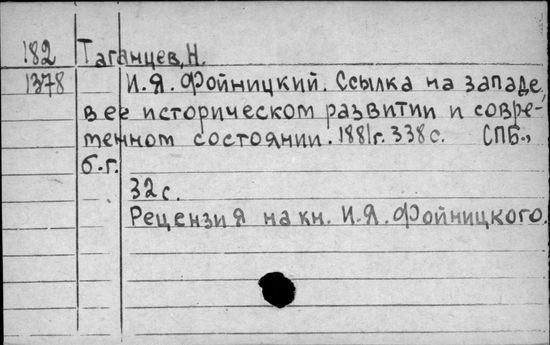 182 Таганцев, Н.
1378 И.Я. Фойницкий. Ссылка на западе
в ее историческом развитии и совре-
менном состоянии. 1881г. 338с. СПБ.,
б.г.
32с.
Рецензия на кн. И.Я. Фойницкого.